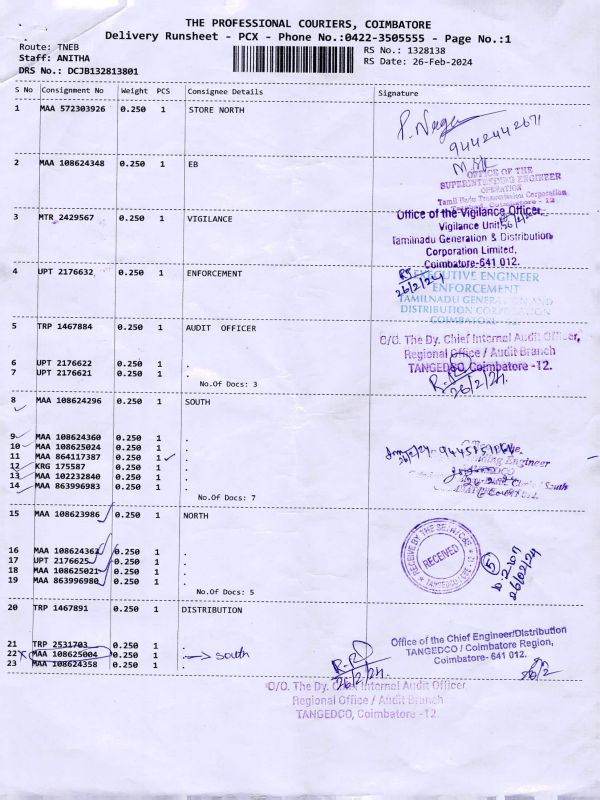 THE PROFESSIONAL COURIERS, COIMBATORE
Delivery Runsheet - PCX - Phone No.:0422-3505555 - Page No.:1
Route: TNEB
RS No.: 1328138
Staff: ANITHA
RS Date: 26-Feb-2024
DRS No.: DCJB132813801
S No Consignment No Weight PCS Consignee Details Signature
1 MAA 572303926 0.250 1 STORE NORTH
9442442671
2 MAA 108624348 0.250 1 EB
OFFICE OF THE
SUPERINTENDING ENGINEER
OPERATION
Tamil Nadu Transmission Corporation
Coimbatore - 12
3 MTR 2429567 0.250 1 VIGILANCE
Office of the Vigilance Officer,
Vigilance Unit,
Tamilnadu Generation & Distribution
Corporation Limited.
Coimbatore-641 012.
4 UPT 2176632 0.250 1 ENFORCEMENT
26/2/24
EXECUTIVE ENGINEER
ENFORCEMENT
TAMILNADU GENERATION AND
DISTRIBUTION CORPORATION
5 TRP 1467884 0.250 1 AUDIT OFFICER
O/O. The Dy. Chief Internal Audit Officer,
Regional Office / Audit Branch
TANGEDCO, Coimbatore -12.
6 UPT 2176622 0.250 1 .
7 UPT 2176621 0.250 1 .
26/2/24.
No.Of Docs: 3
8 MAA 108624296 0.250 1 SOUTH
9 MAA 108624360 0.250 1 .
10 MAA 108625024 0.250 1 .
11 MAA 864117387 0.250 1 .
12 KRG 175587 0.250 1 .
13 MAA 102232840 0.250 1 .
14 MAA 863996983 0.250 1 .
Engineer
South
No.Of Docs: 7
15 MAA 108623986 0.250 1 NORTH
RECEIVED
5
26/02/24
16 MAA 108624362 0.250 1 .
17 UPT 2176625 0.250 1 .
18 MAA 108625021 0.250 1 .
19 MAA 863996980 0.250 1 .
No.Of Docs: 5
20 TRP 1467891 0.250 1 DISTRIBUTION
Office of the Chief Engineer/Distribution
TANGEDCO / Coimbatore Region,
Coimbatore- 641 012.
21 TRP 2531703 0.250 1 .
22 X MAA 108625004 0.250 1 . South
23 MAA 108624358 0.250 1 .
26/2/24.
26/2
O/O. The Dy. Chief Internal Audit Officer
Regional Office / Audit Branch
TANGEDCO, Coimbatore -12.